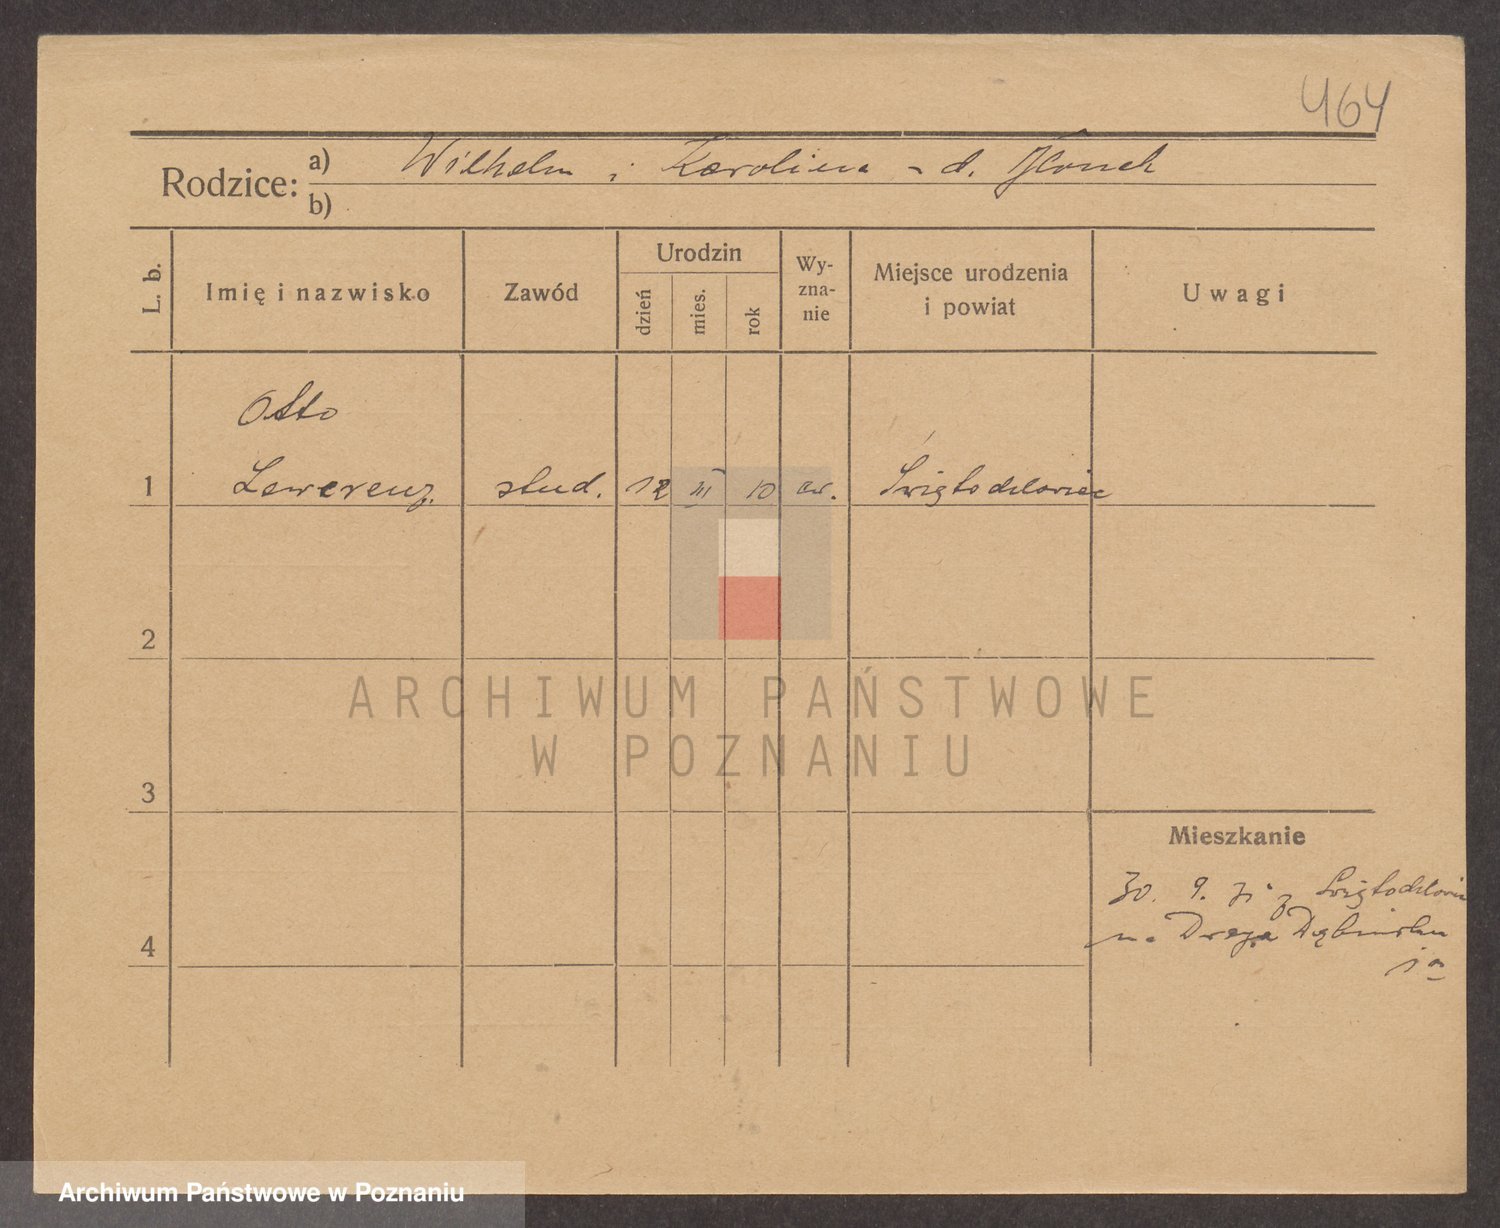 464
Rodzice: a) Wilhelm i Karolina - d.
b)
L. b. Imię i nazwisko Zawód Urodzin dzień mies. rok Wy-zna-nie Miejsce urodzenia i powiat Uwagi
Otto
1 Lewerenz stud. 12 III 10 ew. Świętochłowiec
2
ARCHIWUM PAŃSTWOWE
W POZNANIU
3
Mieszkanie
30. 9. 31 z Świętochłowic
4 na Droga Dębińska
1a
Archiwum Państwowe w Poznaniu